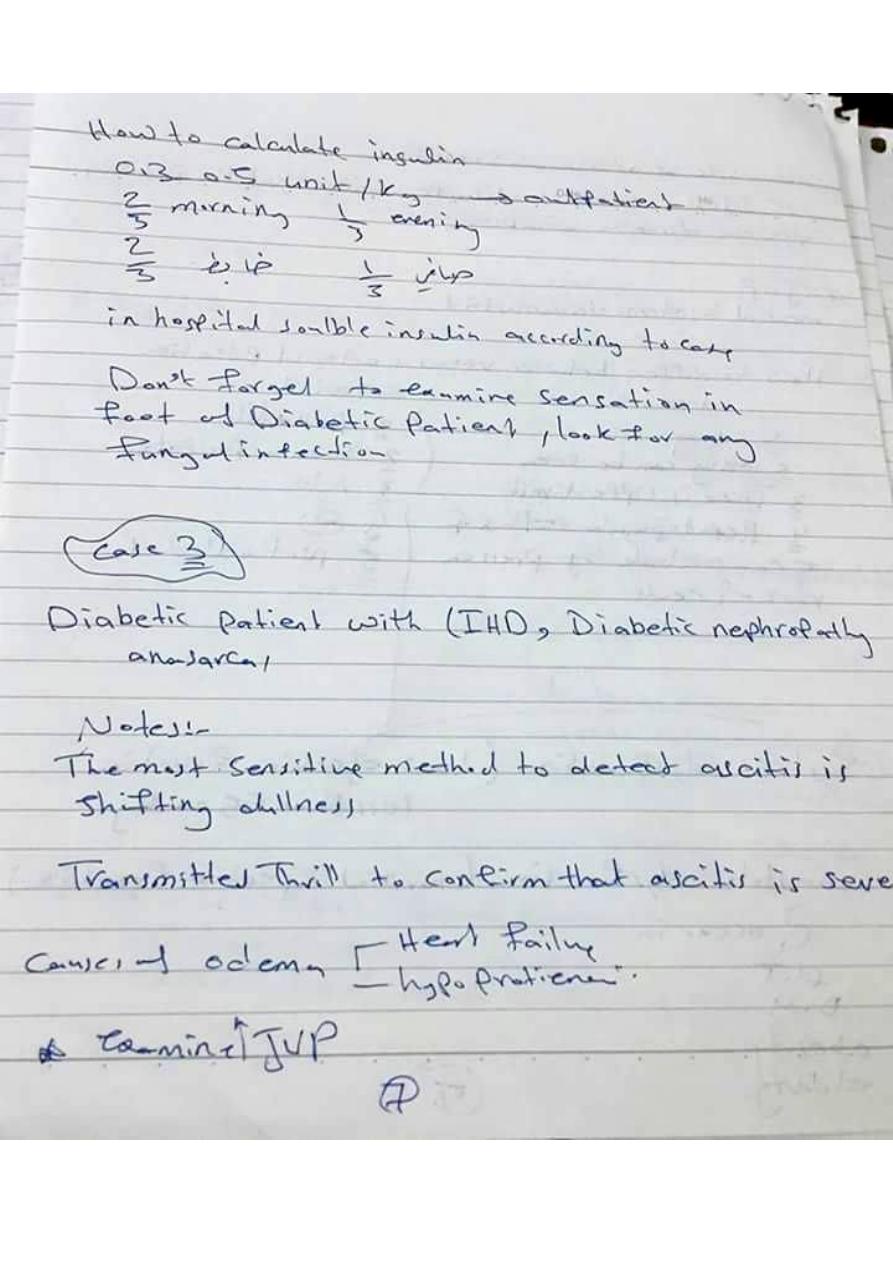 How to calculate insulin
0.3 0.5 unit/kg → outpatient
2/3 morning 1/3 evening
2/3 ضابغ 1/3 صافي
in hospital soulble insulin according to case
Don't forget to examine sensation in
foot of Diabetic Patient, look for any
fungul infection
Case 3
Diabetic patient with (IHD, Diabetic nephropathy
anasarca)
Notes:-
The most sensitive method to detect ascitis is
shifting dullness
Transmitted Thrill to confirm that ascitis is seve
Causes of odema Heart failure
hypoprotienemi
* Examine ↑ JVP
7